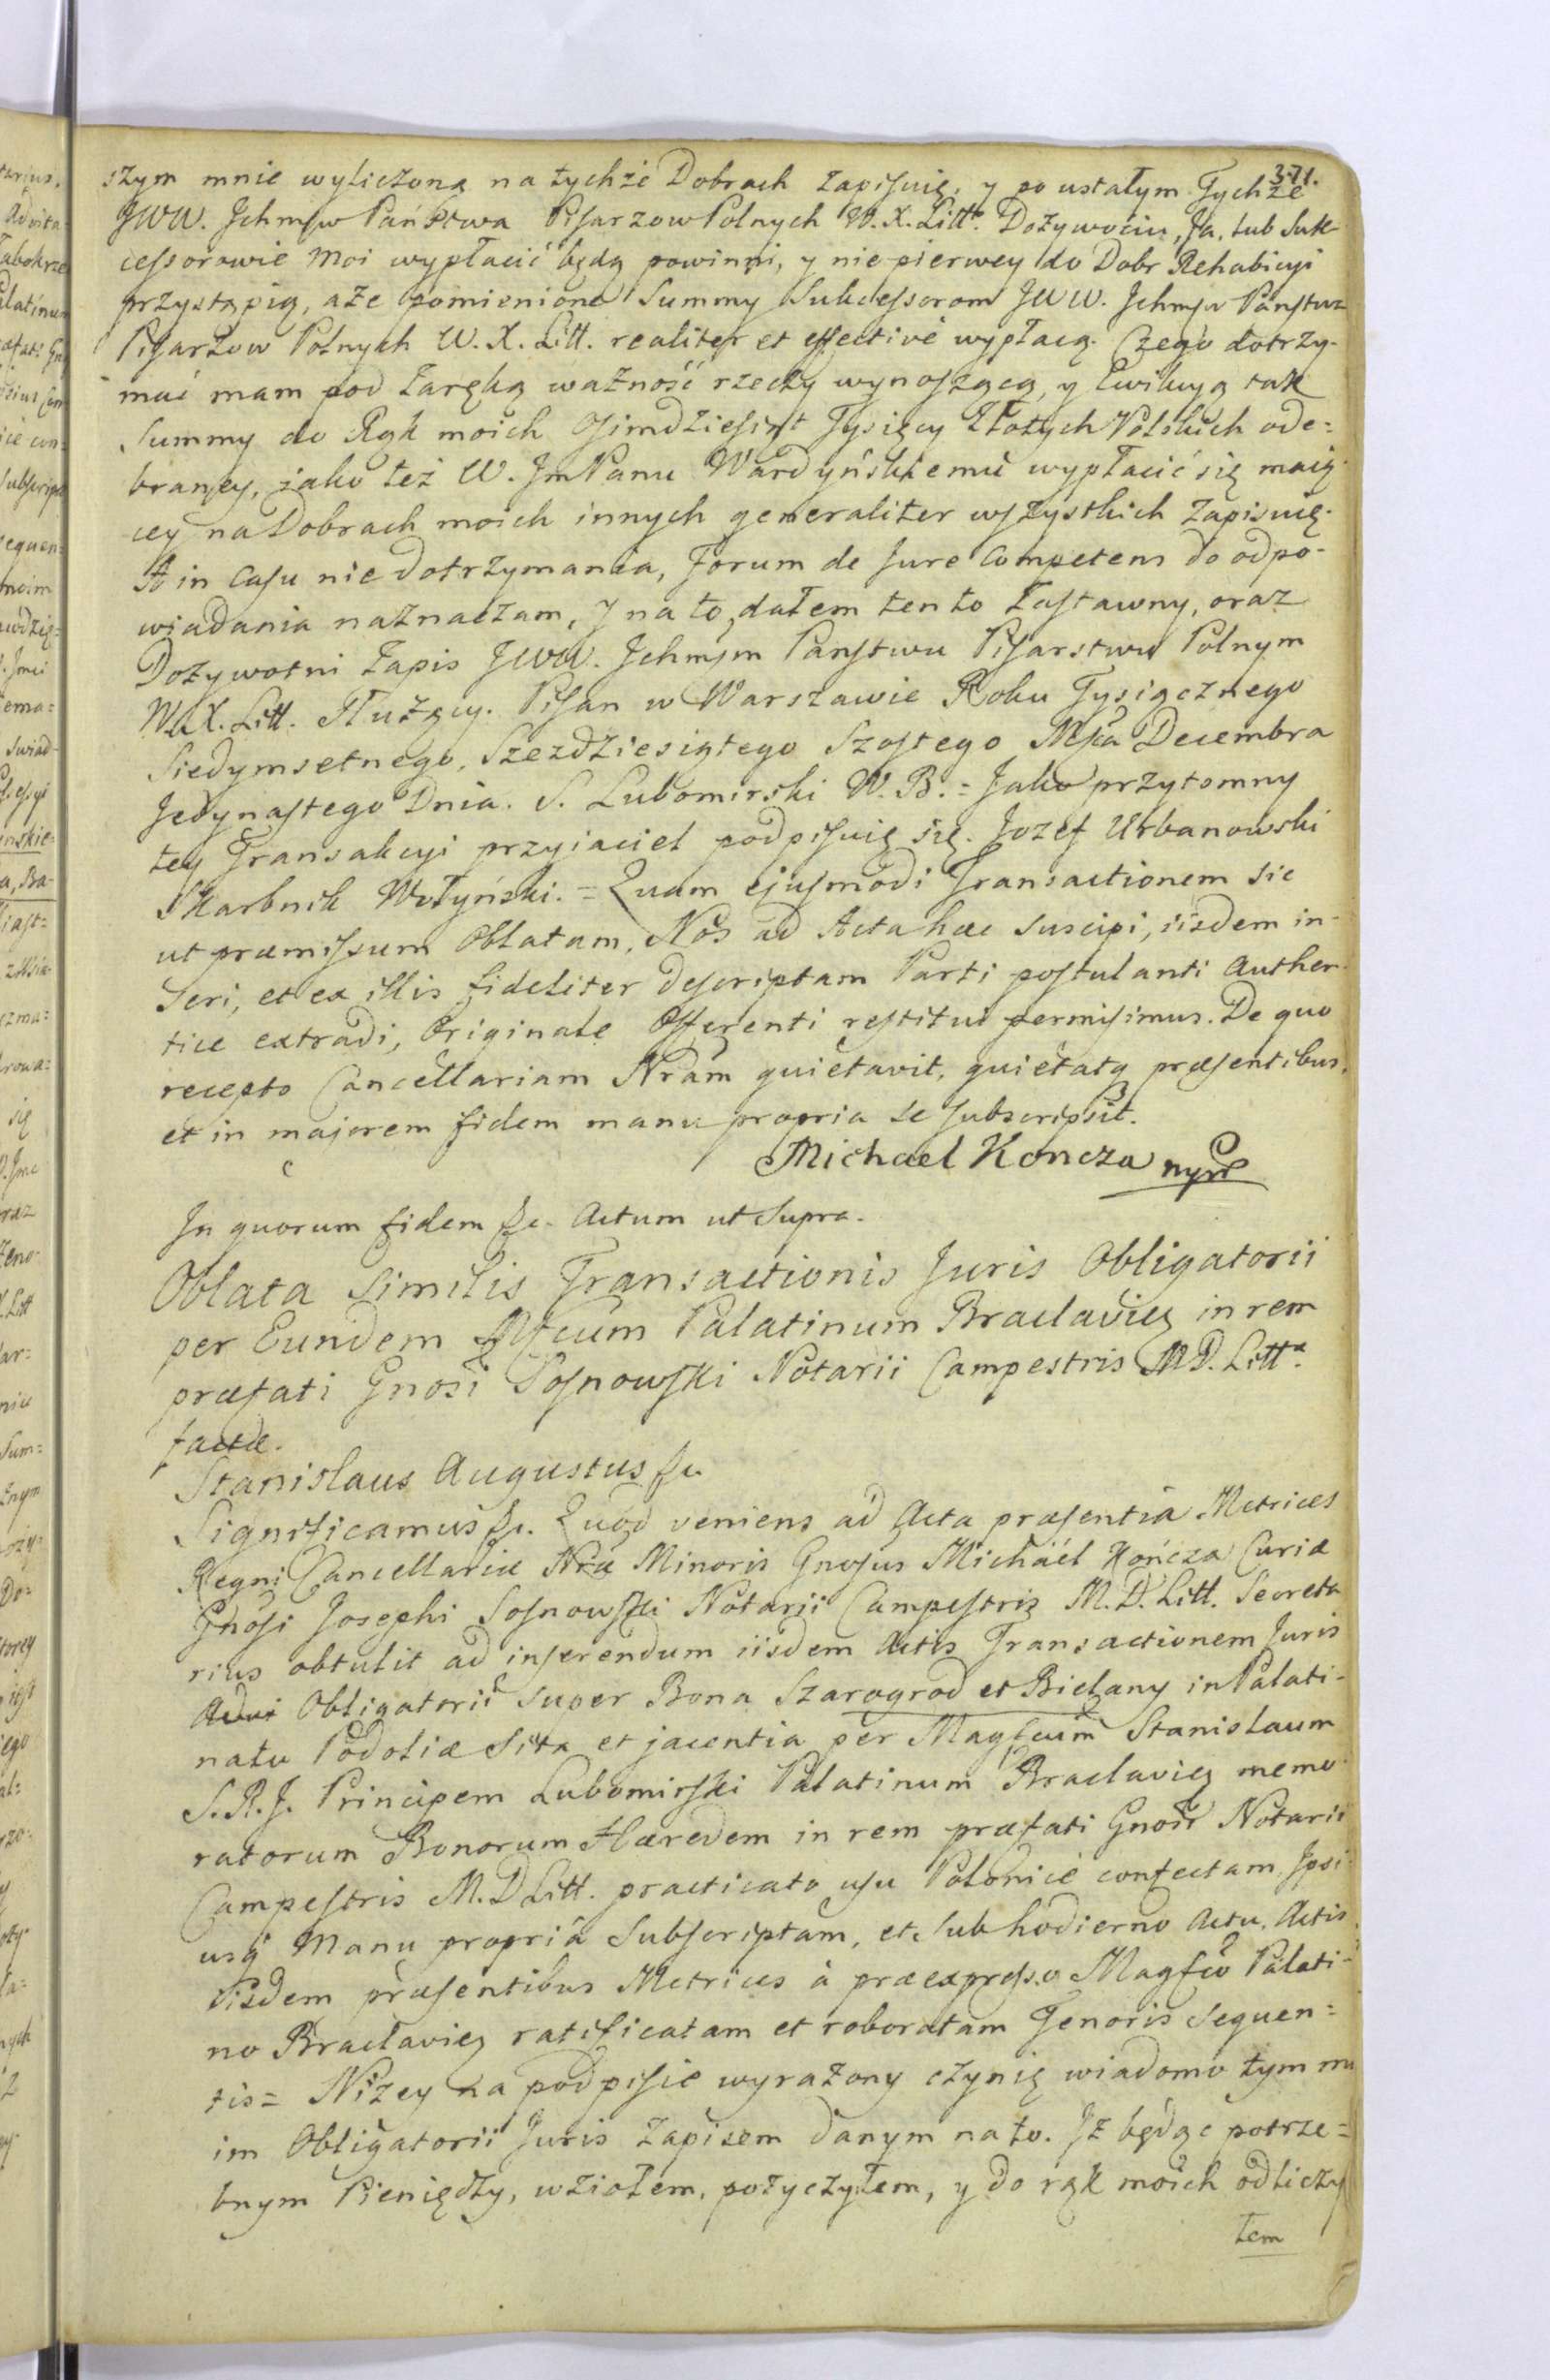 371.
szym mnie wyliczoną na tychże Dobrach zapisuię, y po ustałym Tychże
JWW. Jchmćw Państwa Pisarzow Polnych W. X. Litt. Dożywociu, Ja, lub Suk-
cessorowie moi wypłacić będą powinni, y nie pierwey do Dobr Rehabicyi
przystąpią, aże pomienione Summy Sukcessorom JWW. Jchmćw Państwa
Pisarzow Polnych W. X. Litt. realiter et effective wypłacą. Czego dotrzy-
mać mam pod zaręką ważność rzeczy wynoszącą, y Ewikcyą tak
Summy do Rąk moich Osimdziesiąt Tysięcy Złotych Polskich ode=
braney, jako też W. Jm Panu Wardyńskiemu wypłacić się maią-
cey na Dobrach moich innych generaliter wszystkich zapisuię.
A in Casu nie dotrzymania, Forum de Jure Competens do odpo-
wiadania naznaczam, J na to dałem ten to Zastawny, oraz
Dożywotni Zapis JWW. Jchmćm Państwu Pisarstwu Polnym
W. X. Litt. służący. Pisan w Warszawie Roku Tysiącznego
Siedymsetnego, Szezdziesiątego Szostego Mśca Decembra
Jedynastego Dnia. S. Lubomirski W. B. = Jako przytomny
tey Transakcyi przyiaciel podpisuię się. Jozef Urbanowski
Skarbnik Wołyński. = Quam ejusmodi Transactionem sic
ut præmissum Oblatam, Nos ad Acta hæc suscipi, iisdem in-
seri, et ex illis fideliter descriptam Parti postulanti Authen-
tice extradi, Originale Offerenti restitui permisimus. De quo
recepto Cancellariam Nram quietavit, quietatq præsentibus,
et in majorem fidem manu propria se subscripsit.
Michael Koncza mpp
In quorum fidem &c. Actum ut Supra.
Oblata Similis Transactionis Juris Obligatorii
per Eundem Mfcum Palatinum Braclavien in rem
præfati Gnosi Sosnowski Notarii Campestris M. D. Litt.
factæ.
Stanislaus Augustus &c.
Significamus &c. Quod veniens ad Acta præsentia Metrices
Regni Cancellariæ Nræ Minoris Gnosus Michäel Kończa Curiæ
Gnosi Josephi Sosnowski Notarii Campestris M. D. Litt. Secreta
rius obtulit ad inserendum iisdem Actis Transactionem Juris
Obligatorii super Bona Szarogrod et Bielany in Palati-
natu Podoliæ sita et jacentia per Magfcum Stanislaum
S. R. J. Principem Lubomirski Palatinum Braclavien memo-
ratorum Bonorum Hæredem in rem præfati Gnosi Notarii
Campestris M. D. Litt. practicato usu Polonicè confectam, Ipsi-
usq Manu propriâ Subscriptam, et sub hodierno Actu, Actis
iisdem præsentibus Metrices à præexpresso Magfco Palati-
no Braclavien ratificatam et roboratam Tenoris Sequen=
tis = Niżey na podpisie wyrażony czynię wiadomo tym mo
im Obligatorii Juris Zapisem danym na to. Jż będąc potrze=
bnym Pieniędzy, wziołem, pożyczyłem, y do rąk moich odliczy
łem